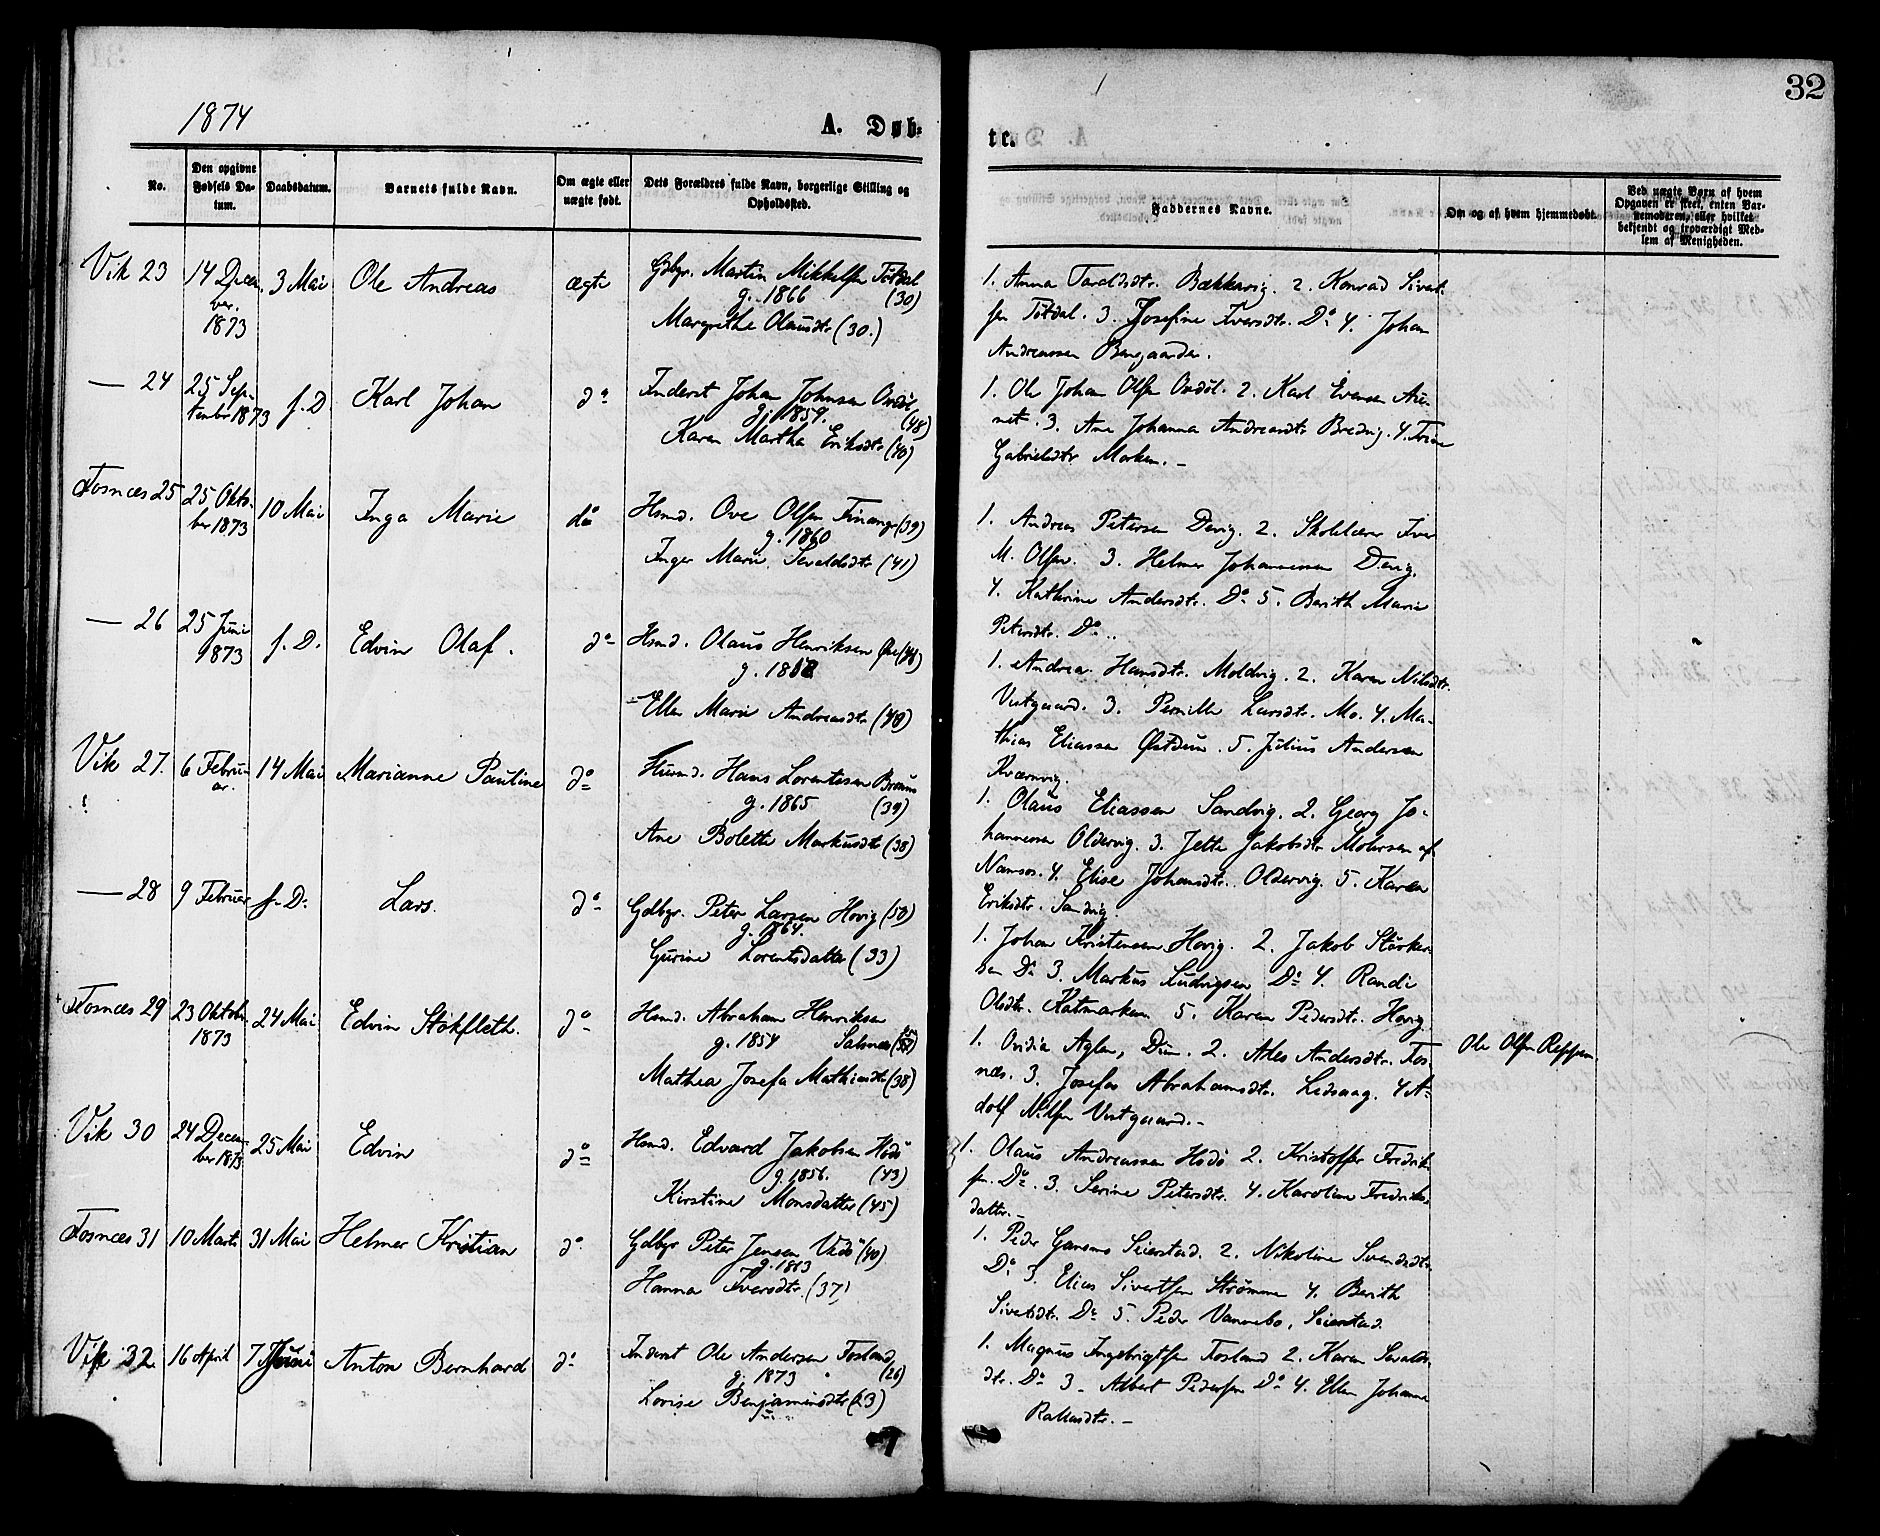 32
1874
A. Døb=
te.
No.
Den opgivne Fødsels Da-
tum.
Daabsdatum.
Barnets fulde Navn.
Om ægte eller uægte født.
Dets Forældres fulde Navn, borgerlige Stilling og Opholdssted.
Faddernes Navne.
Om og af hvem hjemmedøbt.
Ved uægte Børn af hvem
Opgaven er skeet, enten Bar-
nemoderen, eller hvilket
bekjendt og troværdigt Med-
lem af Menigheden.
Vik 23
14 Decem
ber.
1873
3 Mai
Ole Andreas
ægte
Gdbgr. Martin Mikkelsen Tøtdal
g. 1866 (30)
Margrethe Olausdtr (30.)
1. Anna Taraldsdtr. Bækkavig. 2. Konrad Sivert-
sen Tøtdal. 3. Josefine Iversdtr. Do 4. Johan
Andreassen
— 24
25 Sep-
tember 1873
f. D.
Karl Johan
do
Inderst Johan Johnsen
g. 1859. (48)
Karen Martha Eriksdtr (40)
1. Ole Johan Olsen 2. Karl Evensen Au-
net. 3. Ane Johanna Andreasdtr Bredvig. 4. Trine
Gabrielsdtr Morken. —
Fosnæs 25
25 Okto-
ber 1873
10 Mai
Inga Marie
do
Hsmd. Ove Olsen Finanger (39)
g. 1860
Inger Marie Sevaldsdtr (41)
1. Andreas Petersen Devig. 2. Skolelærer Iver
M. Olsen. 3. Helmer Johannesen Devig.
4. Kathrine Andersdtr. Do 5. Berith Marie
Petersdtr. Do..
— 26
25 Juni
1873
f. D.
Edvin Olaf.
do
Hsmd. Olaus Henriksen
Ellen Marie Andreasdtr (48)
1. Andrea Hansdtr. Moldvig. 2. Karen Nilsdtr.
Vestgaard. 3. Pernille Larsdtr. Mo. 4. Ma-
thias Eliassen 5. Julius Andersen
Kværnvig.
Vik 27.
6 Febru-
ar.
14 Mai
Marianne Pauline
do
Husmd. Hans Lorentzsen
g. 1865 (39)
Ane Bolette Markusdtr (38)
1. Olaus Eliassen Sandvig. 2. Georg Jo-
hannesen Oldervig. 3. Jette Jakobsdtr af
Namsos. 4. Elise Johansdtr. Oldervig. 5. Karen
Eriksdtr. Sandvig.
— 28
9 Februar
f. D.
Lars.
do
Gdbgr. Peter Larsen Hovig (50)
g. 1864.
Gurine Lorentsdatter (33)
1. Johan Kristensen Hovig. 2. Jakob Størker-
sen Do 3. Markus Ludvigsen Do 4. Randi
Olsdtr. Katmarken 5. Karen Pedersdtr. Hovig
Fosnæs 29
23 Oktobr.
1873
24 Mai
Edvin Støkfleth.
do
Hsmd. Abraham Henriksen
g. 1854 Salsnæs
Mathea Josefa Mathiasdtr (38)
1. Ovidia Aglen, Duun. 2. Andersdtr. Fos-
næs. 3. Josefa Abrahamsdtr. 4 A-
dolf Nilsen Vestgaard. —
Ole Olsen Reppen.
Vik 30
24 Decem-
ber 1873
25 Mai
Edvin
do
Hsmd. Edvard Jakobsen Hodø
g. 1856. (43)
Kirstine Monsdatter (45)
1. Olaus Andreassen Hodø 2. Kristoffer Fredrik-
sen. Do. 3. Serine Petersdtr. 4. Karoline Fredriks-
datter. —
Fosnæs 31
10 Marts
31 Mai
Helmer Kristian
do
Gdbgr Peter Jensen (40)
Hanna Iversdtr. (37)
1. Peder Gansmo Seierstad. 2. Nikoline Svendsdtr.
Do 3. Elias Sivertsen Strømmen 4. Berith
Sivertsdtr. Do 5. Peder Vannebo, Seierstad.
Vik 32
16 April
7 Juni
Anton Bernhard
do
Inderst Ole Andersen Fosland
g. 1873 (26)
Lovise Benjaminsdtr (23)
1. Magnus Ingebrigtsen Fosland 2. Karen Sevalds-
dtr. Do 3. Albert Pedersen Do 4. Ellen Johanna